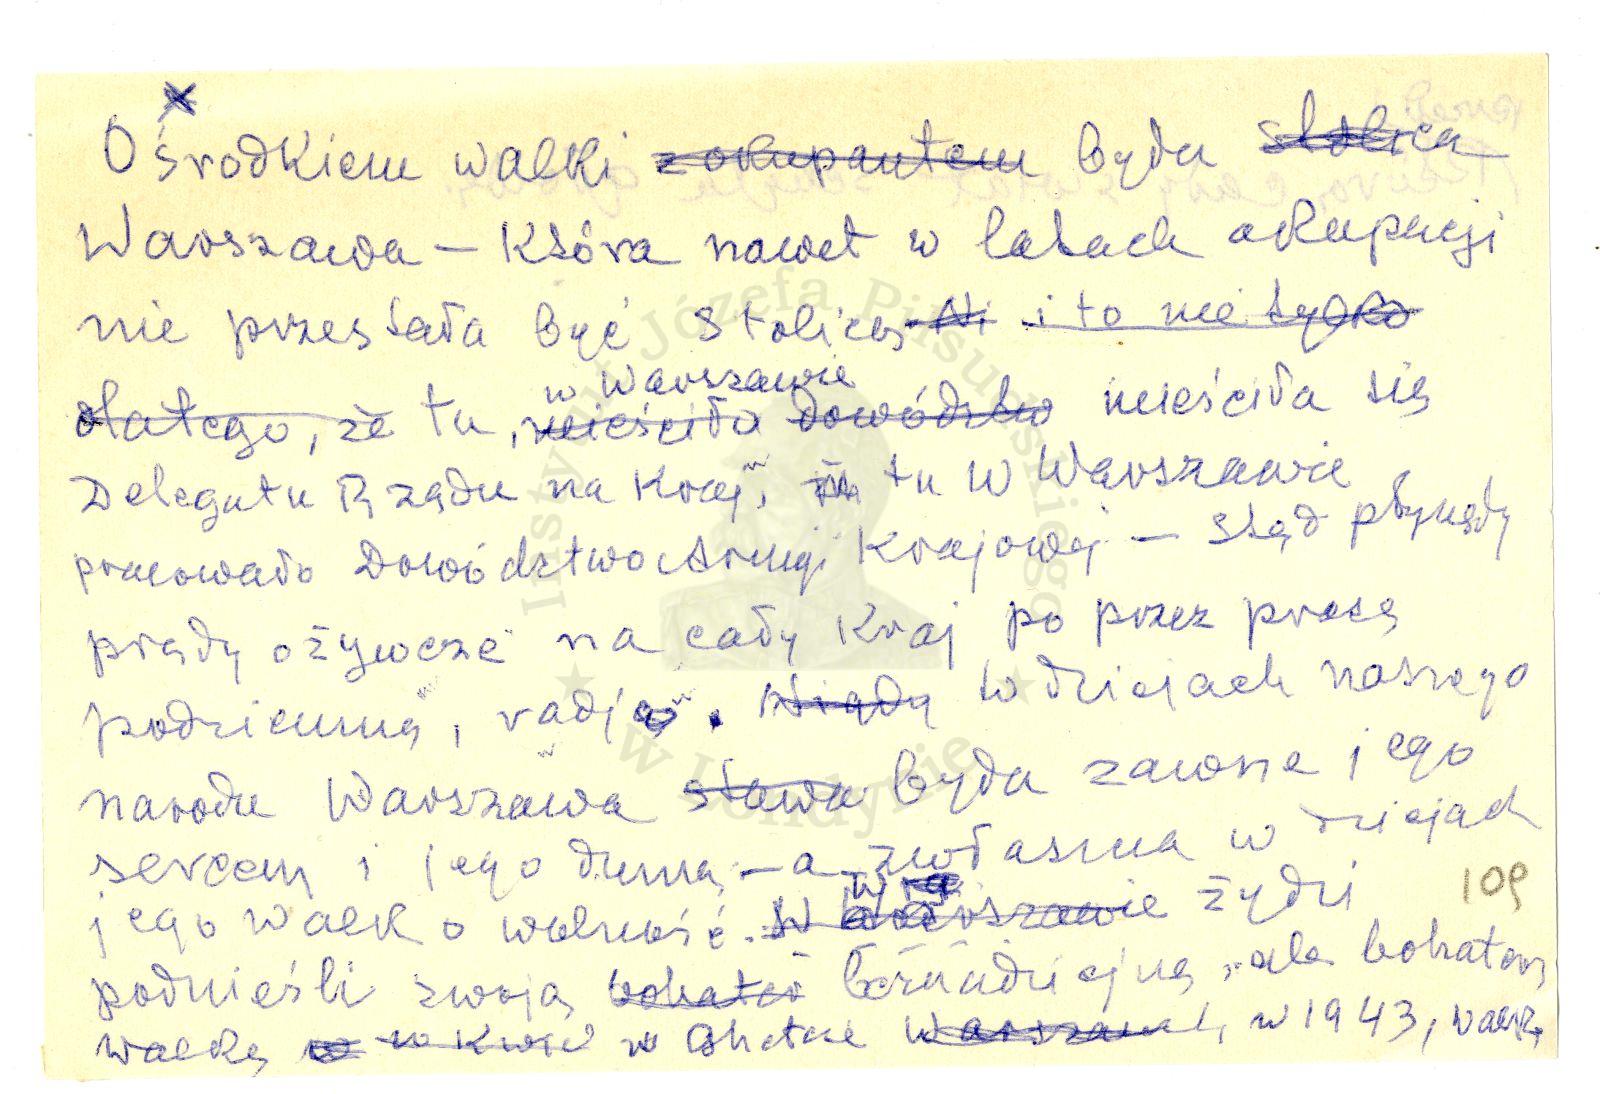 Ośrodkiem walki z okupantem była stolica
Warszawa – Która nawet w latach okupacji
nie przestała być stolicą i to nie tylko
dlatego, że tu, mieściła dowództwo mieściła się
w Warszawie
Delegatu Rządu na Kraj, tu w Warszawie
pracowało Dowództwo Armji Krajowej – stąd płynęły
prądy ożywcze na cały Kraj po przez prasę
podziemną, radjo. W dziejach naszego
narodu Warszawa sława była zawsze jego
sercem i jego dumą – a zwłaszcza w dziejach
jego walk o wolność. W Warszawie żydzi
109
podnieśli swoją beznadziejną, ale bohaterską
walkę w Ghetcie w 1943, walkę
Instytut Józefa Piłsudskiego
w Londynie